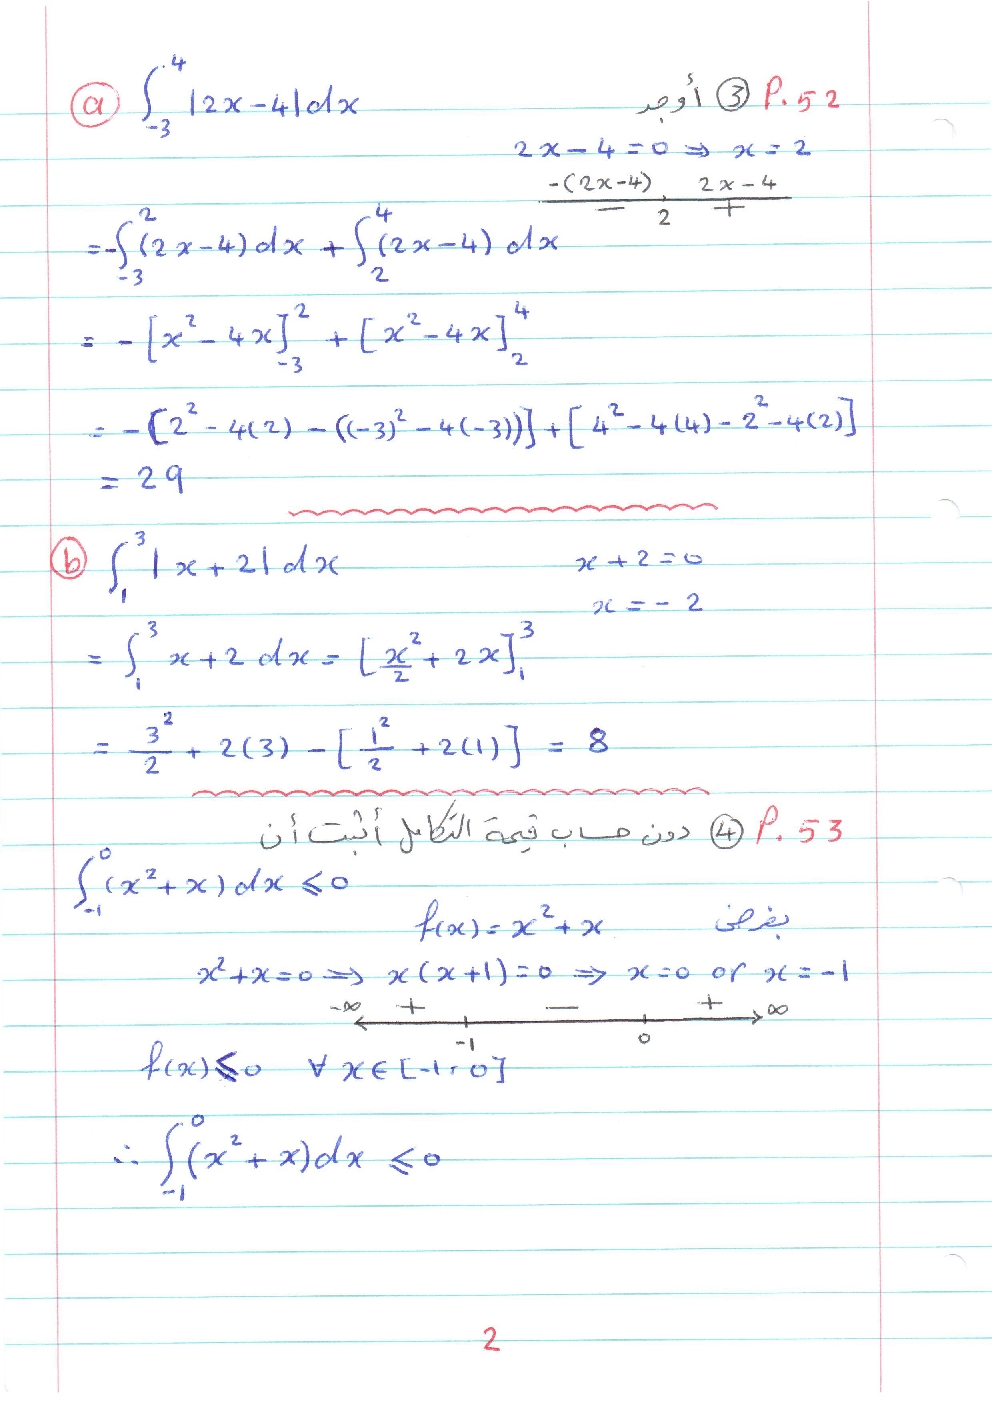 P. 52 ③ أوجد
ⓐ ∫₋₃⁴ |2x-4| dx
2x-4=0 ⇒ x=2
-(2x-4) 2x-4
− 2 +
= -∫₋₃² (2x-4) dx + ∫₂⁴ (2x-4) dx
= -[x²-4x]₋₃² + [x²-4x]₂⁴
= -[2²-4(2)-((-3)²-4(-3))]+[4²-4(4)-2²-4(2)]
= 29
ⓑ ∫₁³ |x+2| dx x+2=0
x=-2
= ∫₁³ x+2 dx = [x²/2 + 2x]₁³
= 3²/2 + 2(3) - [1²/2 + 2(1)] = 8
P. 53 ④ دون حساب قيمة التكامل أثبت أن
∫₋₁⁰ (x²+x) dx ⩽ 0
بفرض f(x) = x²+x
x²+x=0 ⇒ x(x+1)=0 ⇒ x=0 or x=-1
-∞ + − + ∞
-1 0
f(x)⩽0 ∀ x∈[-1,0]
∴ ∫₋₁⁰ (x²+x) dx ⩽ 0
2